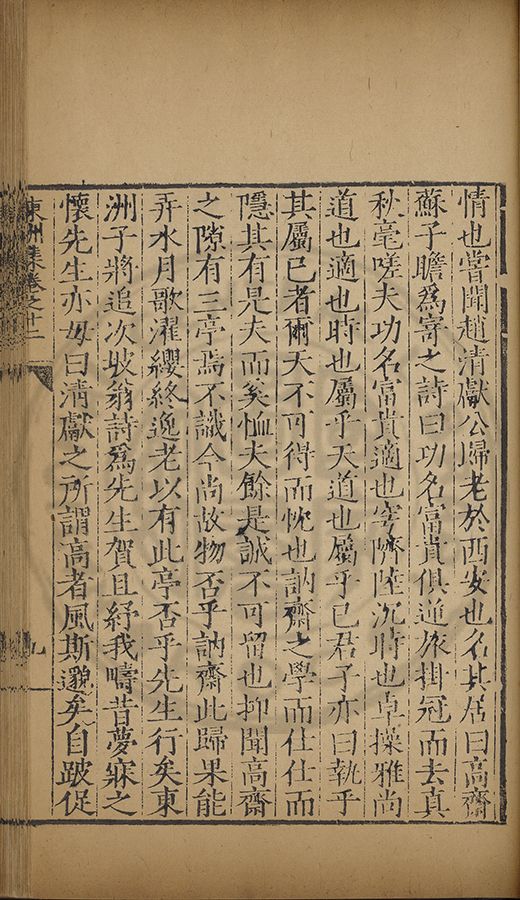 情也嘗聞趙清獻公歸老於西安也名其居曰高齋
蘇子瞻爲寄之詩曰功名富貴俱逆旅掛冠而去眞
秋毫嗟夫功名富貴適也窮隮陸沉時也卓操雅尚
道也適也時也屬乎天道也屬乎已君子亦曰執乎
其屬已者爾天不可得而忱也訥齋之學而仕仕而
隱其有是夫而奚恤夫餘是誠不可留也抑聞高齋
之隙有三亭焉不識今尚故物否乎訥齋此歸果能
弄水月歌濯纓終逸老以有此亭否乎先生行矣東
洲子將追次坡翁詩爲先生賀且紓我疇昔夢寐之
懷先生亦毋曰清獻之所謂高者風斯邈矣自跛促
東洲集卷之十二
九